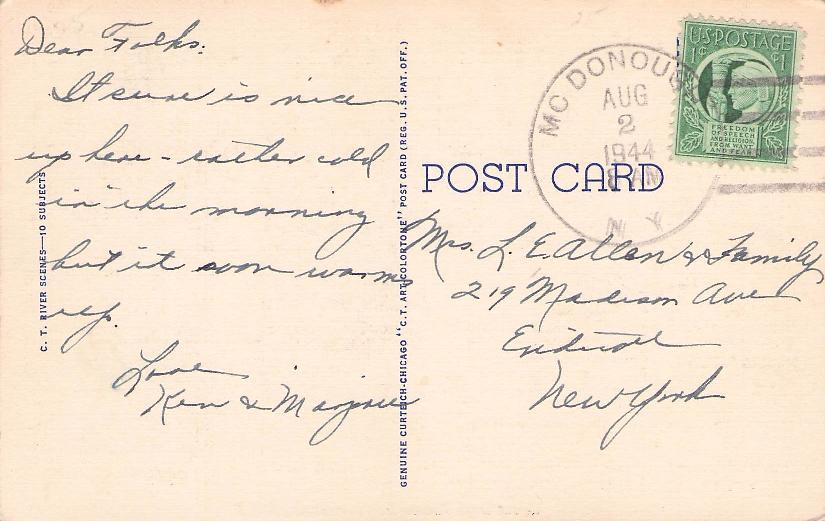 Dear Folks:
It sure is nice
up here - rather cold
in the morning
but it soon warms
up.
Love
Ken & Marjorie
C. T. RIVER SCENES—10 SUBJECTS
GENUINE CURTEICH-CHICAGO "C.T. ART-COLORTONE" POST CARD (REG. U.S. PAT. OFF.)
POST CARD
MC DONOUGH
AUG
2
1944
8 AM
N Y
U.S. POSTAGE
1¢ ¢1
FREEDOM
OF SPEECH
AND RELIGION,
FROM WANT
AND FEAR
Mrs. L. E. Allen & Family
219 Madison Ave
Endicott
New York